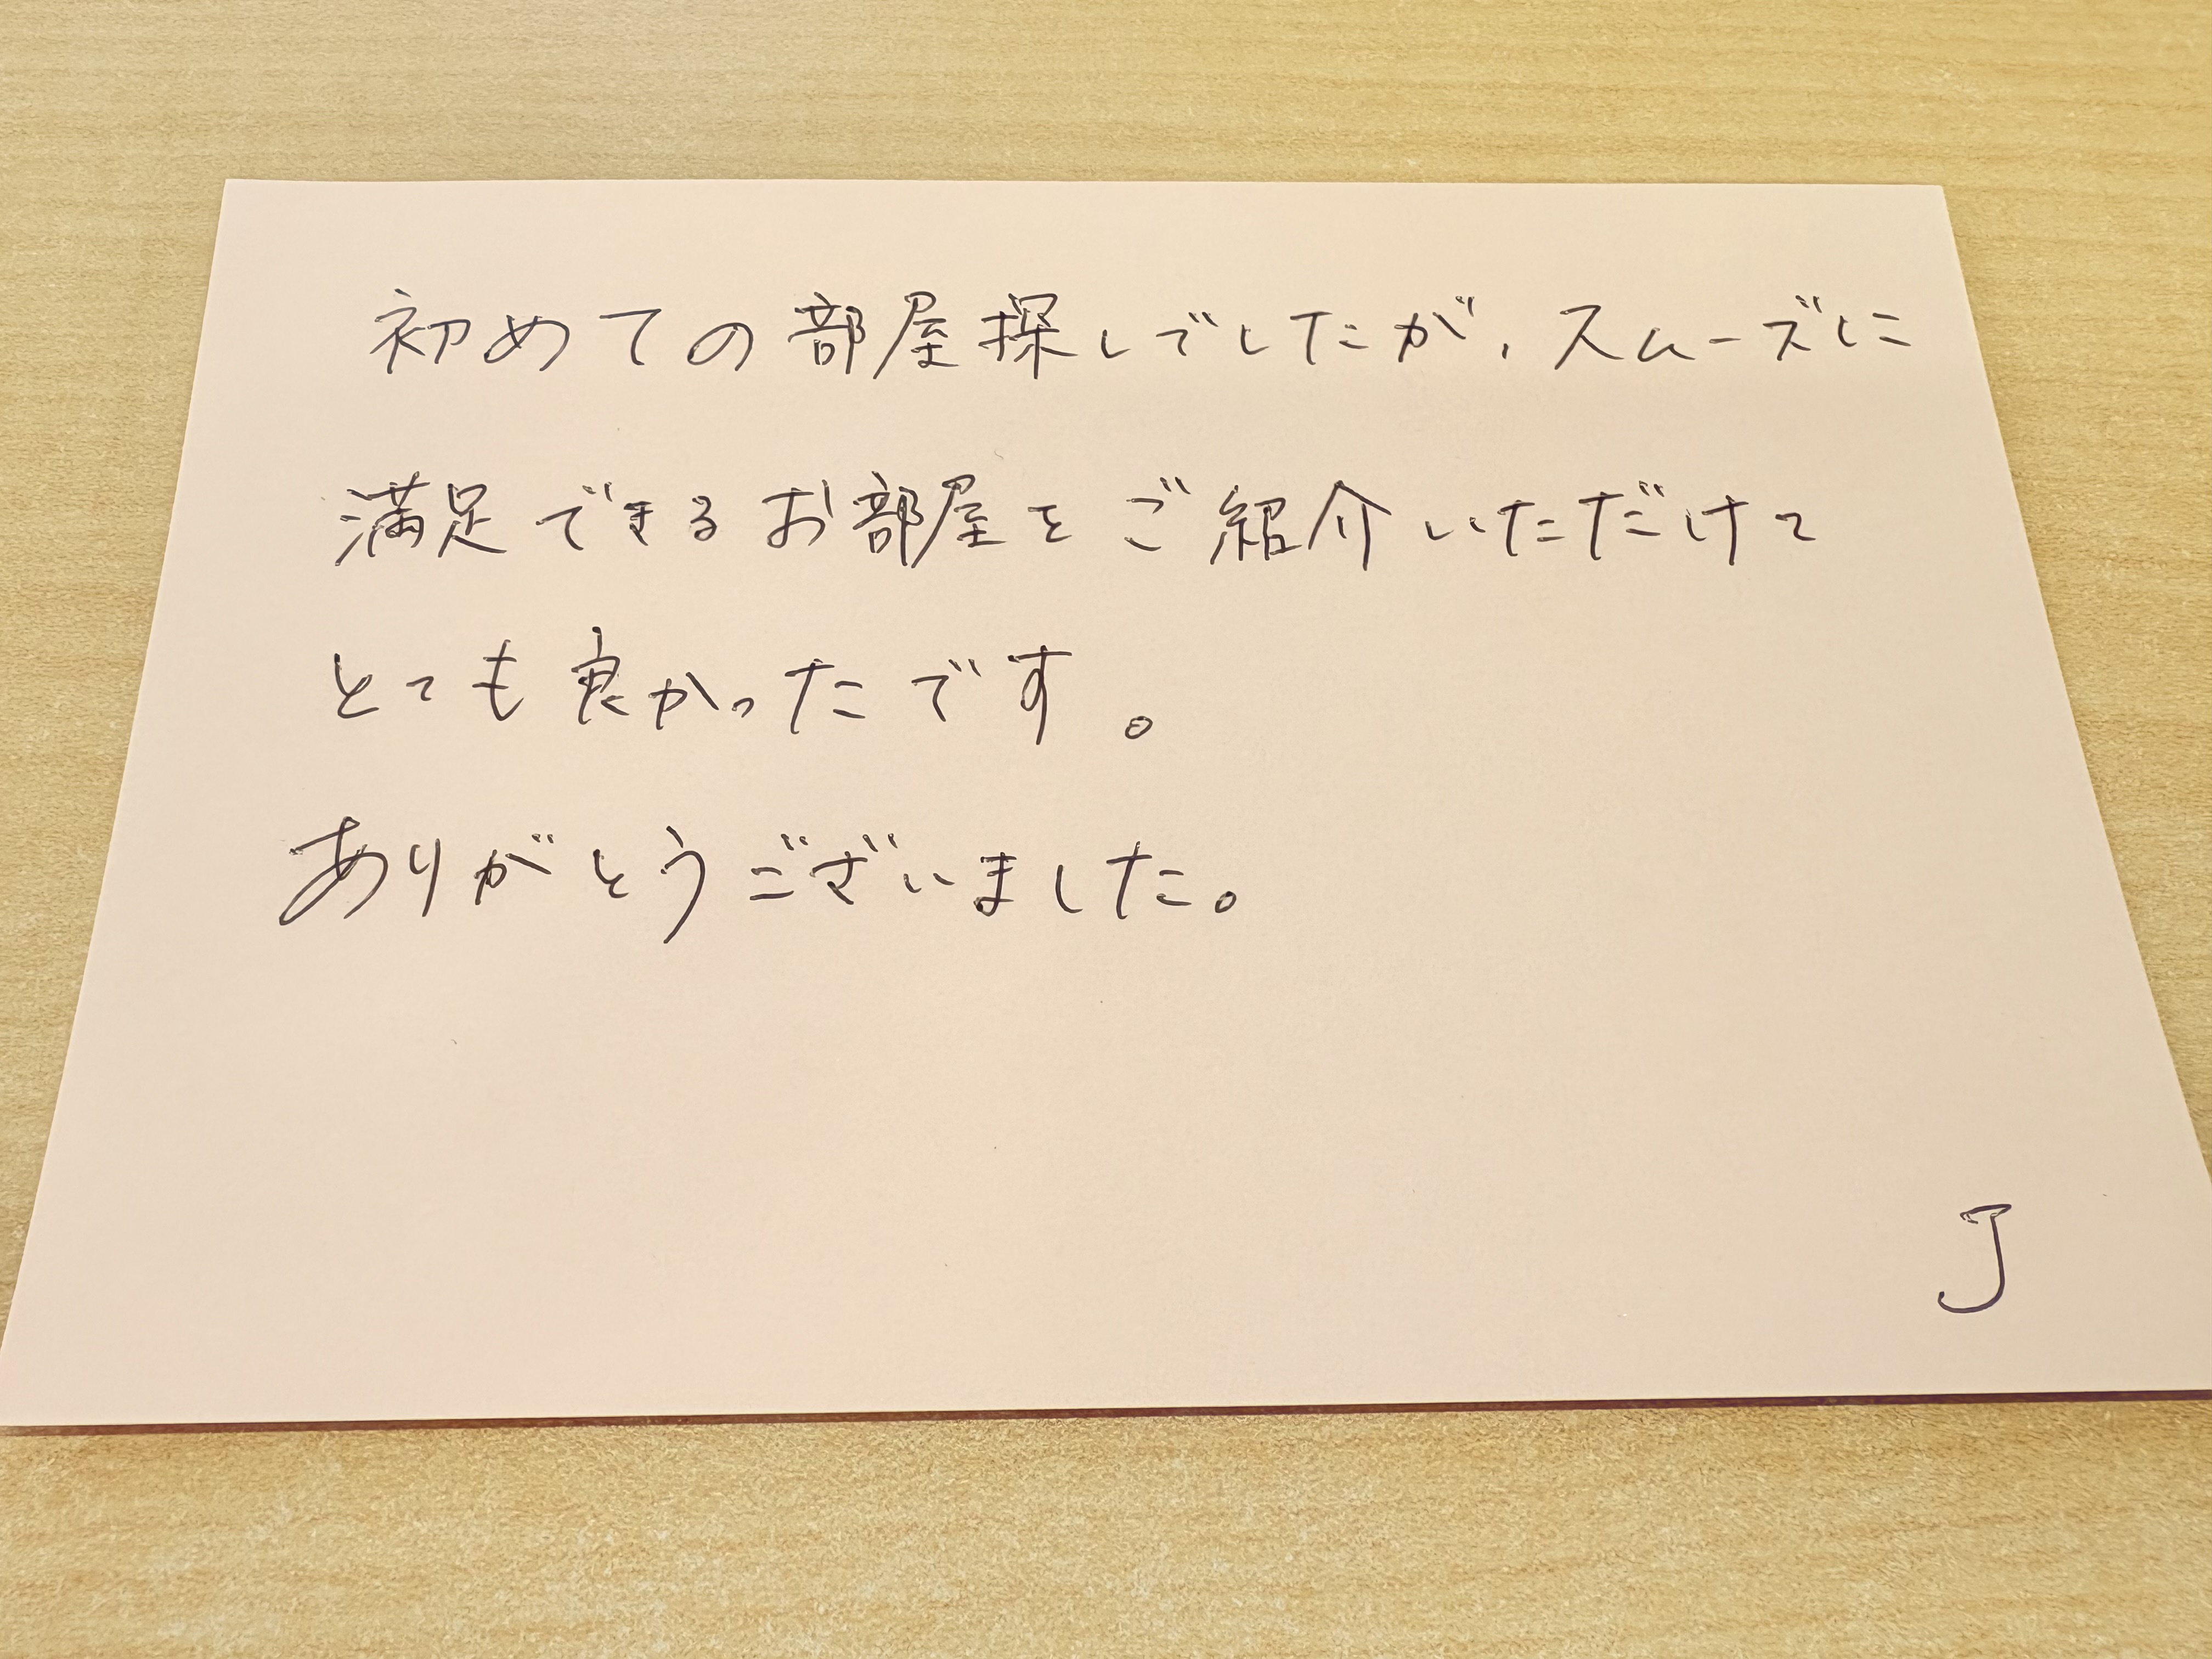 初めての部屋探しでしたが、スムーズに
満足できるお部屋をご紹介いただけて
とても良かったです。
ありがとうございました。
J